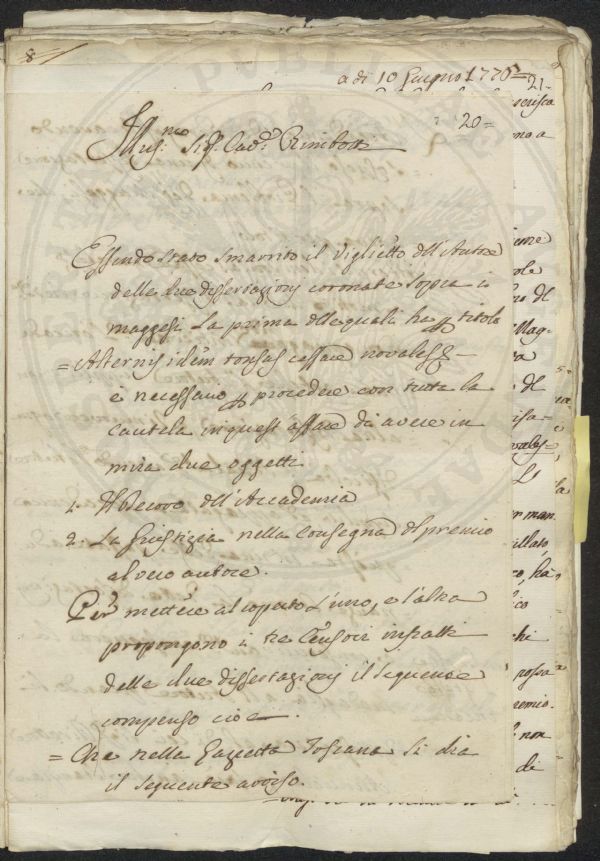 8
a di 10 Giugno 1770 = 21 =
20 =
Ill.mo Sig. Cav.
Essendo stato smarrito il Viglietto dell'Autore
delle due dissertazioni coronate sopra i
maggesi. La prima delle quali ha p titolo
= Alternis idem tonsas cessare novales &c =
è necessario p procedere con tutta la
cautela in quest affare di avere in
mira due oggetti
1. Il Decoro dell'Accademia
2. La Giustizia nella Consegna del premio
al vero autore.
Per mettere al coperto l'uno, e l'altro
propongono i tre Censori
delle due dissertazioni il seguente
compenso cioè.
= Che nella Gazzetta Toscana si dia
il seguente avviso.